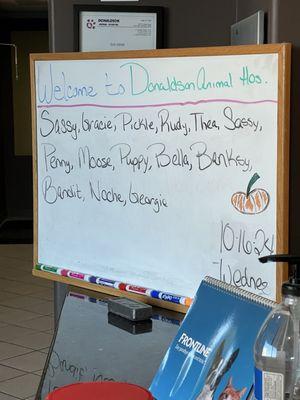 DONALDSON
Welcome to Donaldson Animal Hos.
Sassy, Gracie, Pickle, Rudy, Thea, Sassy,
Penny, Moose, Puppy, Bella, Banksy,
Bandit, Noche, Georgia
10-16-24
-Wednes
FRONTLINE